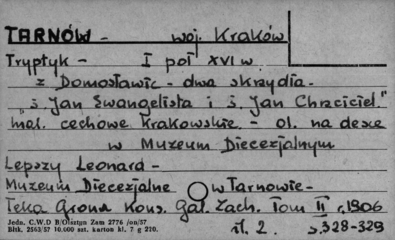 TARNÓW - woj. Kraków
Tryptyk - I poł XVI w
z Domosławic - dwa skrzydła -
"ś. Jan Ewangelista i ś. Jan Chrzciciel"
mal. cechowe Krakowskie - ol. na desce
w Muzeum Diecezjalnym
Lepszy Leonard -
Muzeum Diecezjalne w Tarnowie -
Teka Grona Kons. Gal. Zach. Tom II r. 1906
il. 2. s. 328-329
Jedn. C.W.D B/Olsztyn Zam 2776 /on/57
Bltk. 2563/57 10.000 szt. karton kl. 7 g 210.